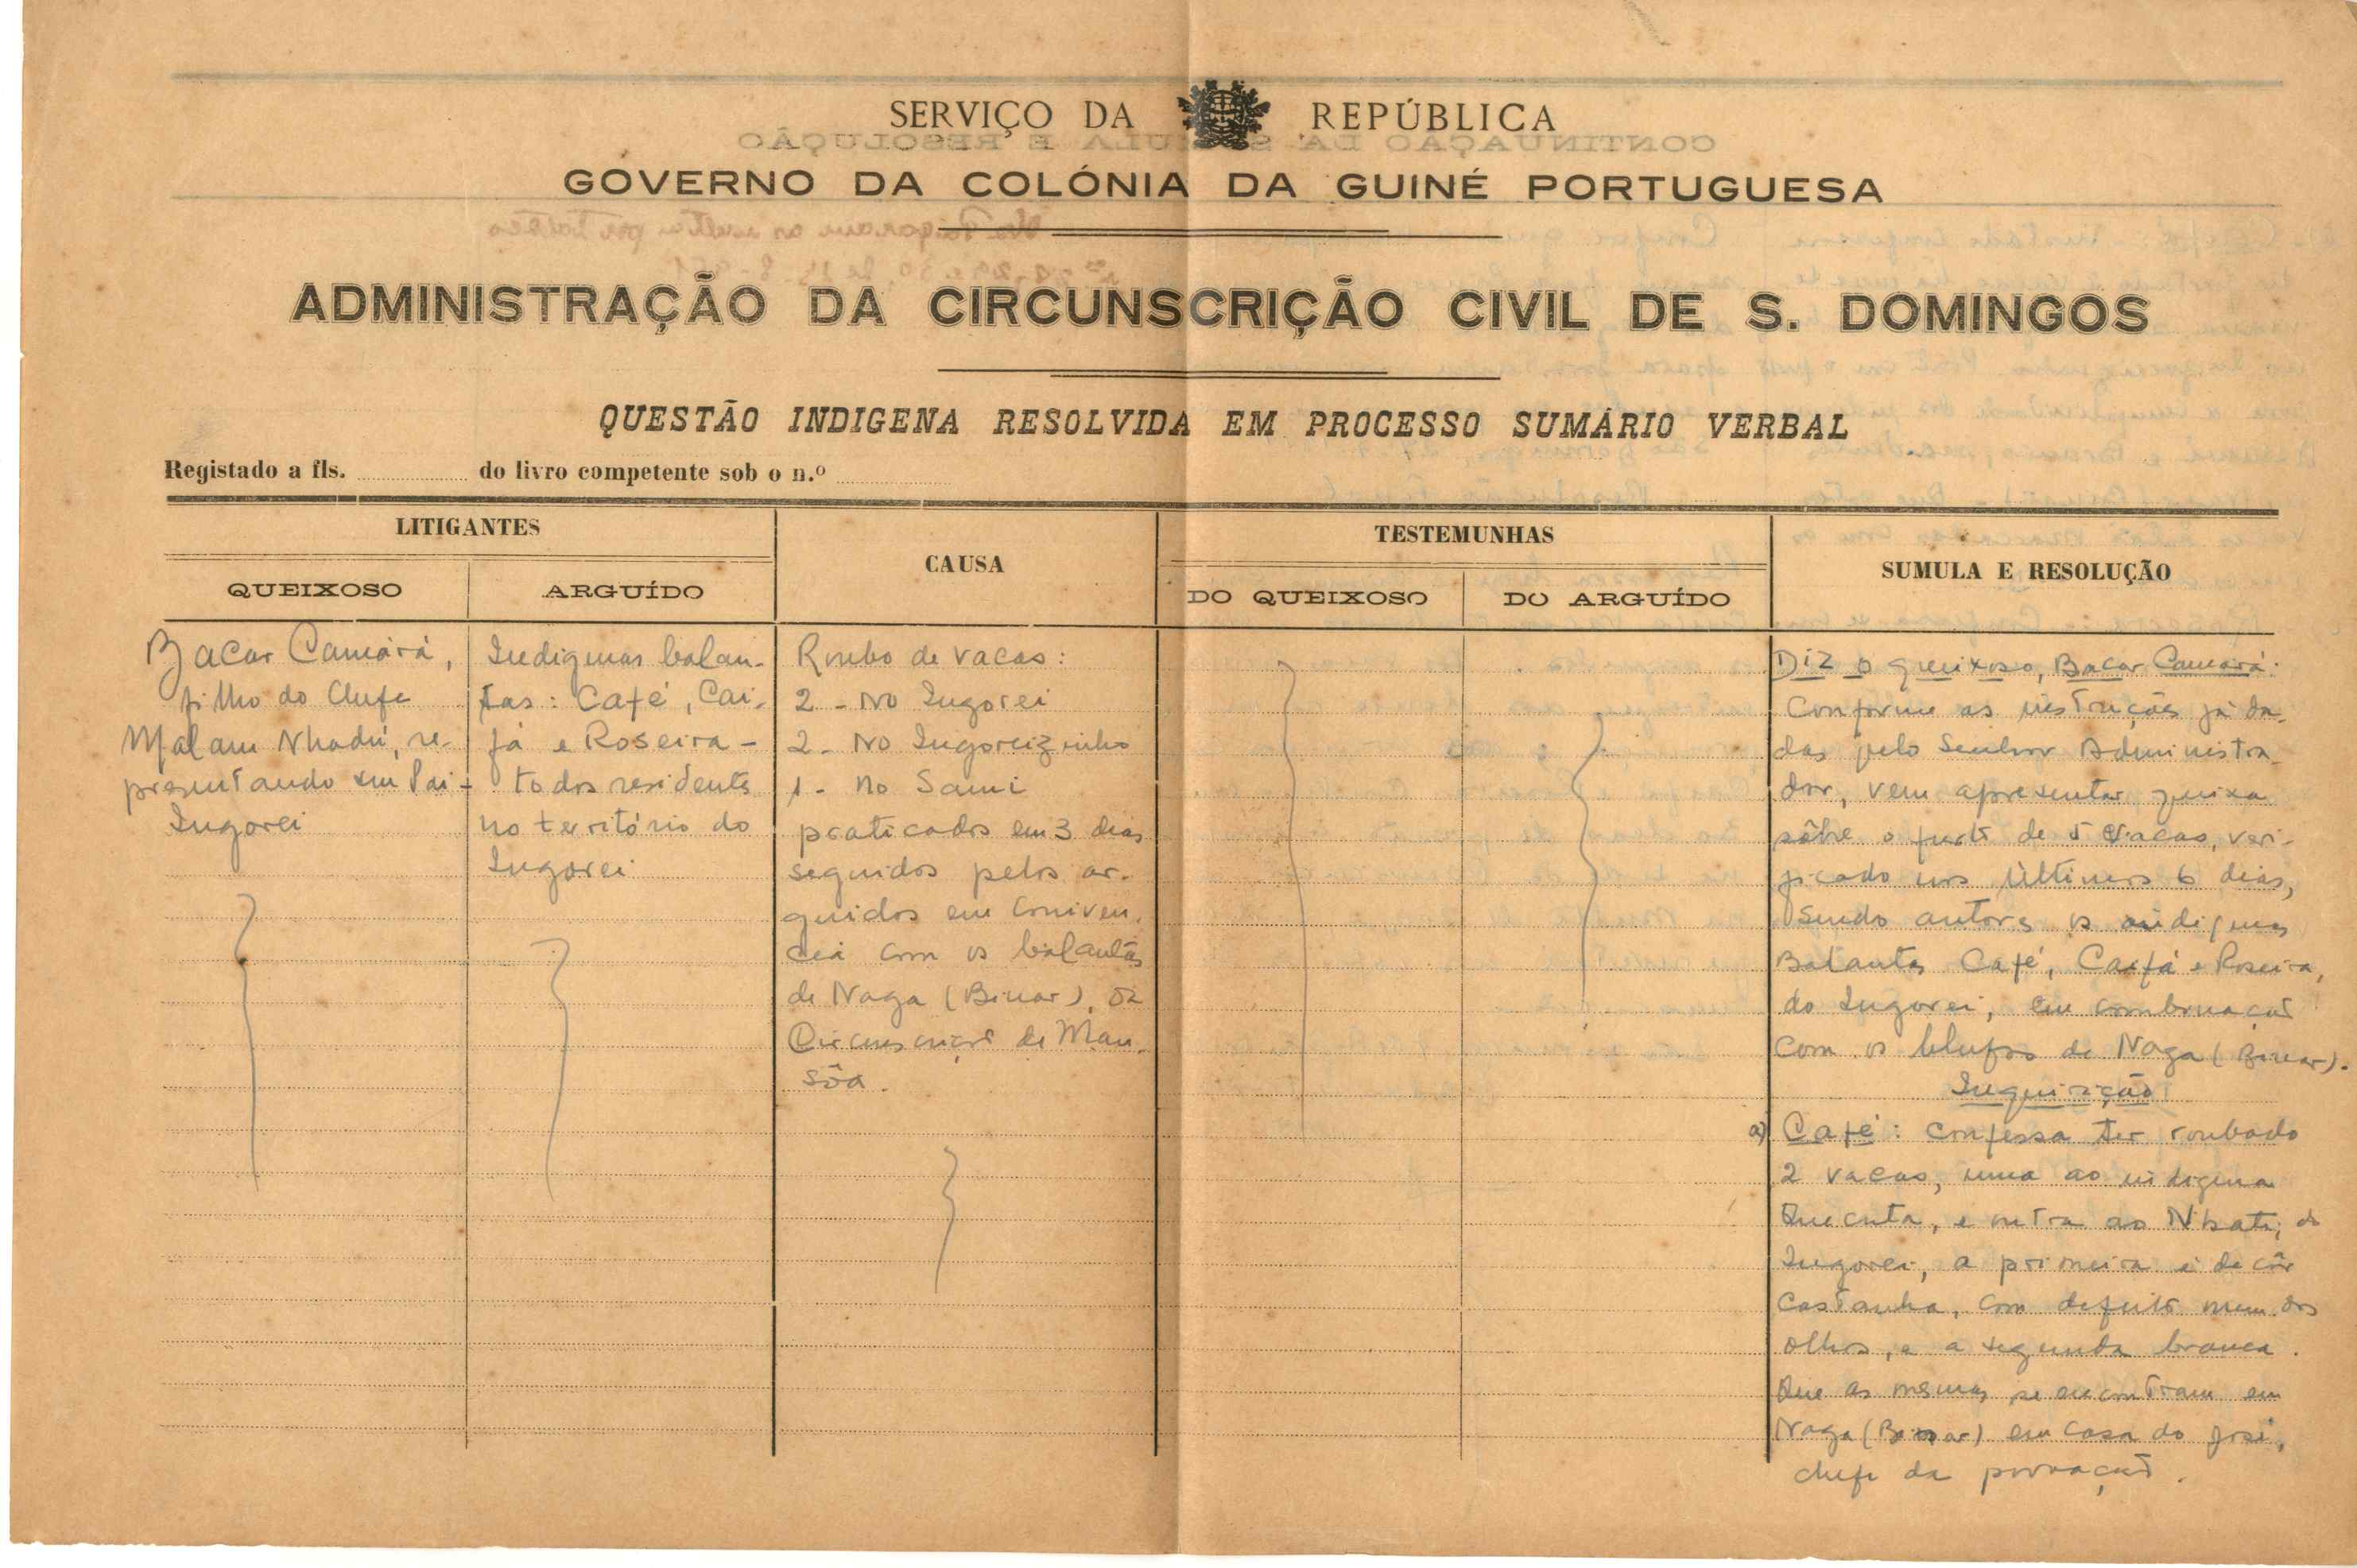 SERVIÇO DA REPÚBLICA
GOVERNO DA COLÓNIA DA GUINÉ PORTUGUESA
ADMINISTRAÇÃO DA CIRCUNSCRIÇÃO CIVIL DE S. DOMINGOS
QUESTÃO INDIGENA RESOLVIDA EM PROCESSO SUMÁRIO VERBAL
Registado a fls. do livro competente sob o n.º
LITIGANTES
QUEIXOSO
ARGUÍDO
CAUSA
TESTEMUNHAS
DO QUEIXOSO
DO ARGUÍDO
SUMULA E RESOLUÇÃO
Bacar Camará,
filho do Chefe
Malam Nhadú, re-
presentando seu Pai -
Ingorei
Indigenas balan-
tas: Café, Cai-
fá e Roseira -
todos residentes
no território do
Ingorei
Roubo de vacas:
2 - No Ingorei
2 - No Ingoreizinho
1 - No Sami
praticados em 3 dias
seguidos pelos ar-
guidos em coniven-
cia com os balantas
de Naga (Binar), da
Circunscrição de Man-
sôa.
Diz o queixoso, Bacar Camará:
Conforme as instruções já da-
das pelo Senhor Administra-
dor, vem apresentar queixa
sôbre o furto de 5 vacas, veri-
ficado nos últimos 6 dias,
sendo autores os indigenas
Balantas Café, Caifá e Roseira,
do Ingorei, em combinação
com os blufos de Naga (Binar).
Inquirição
a) Café: confessa ter roubado
2 vacas, uma ao indigena
Quecuta, e outra ao do
Ingorei, a primeira é de côr
castanha, com defeito num dos
olhos, e a segunda branca.
Que as mesmas se encontram em
Naga (Binar) em casa do José,
chefe da povoação.